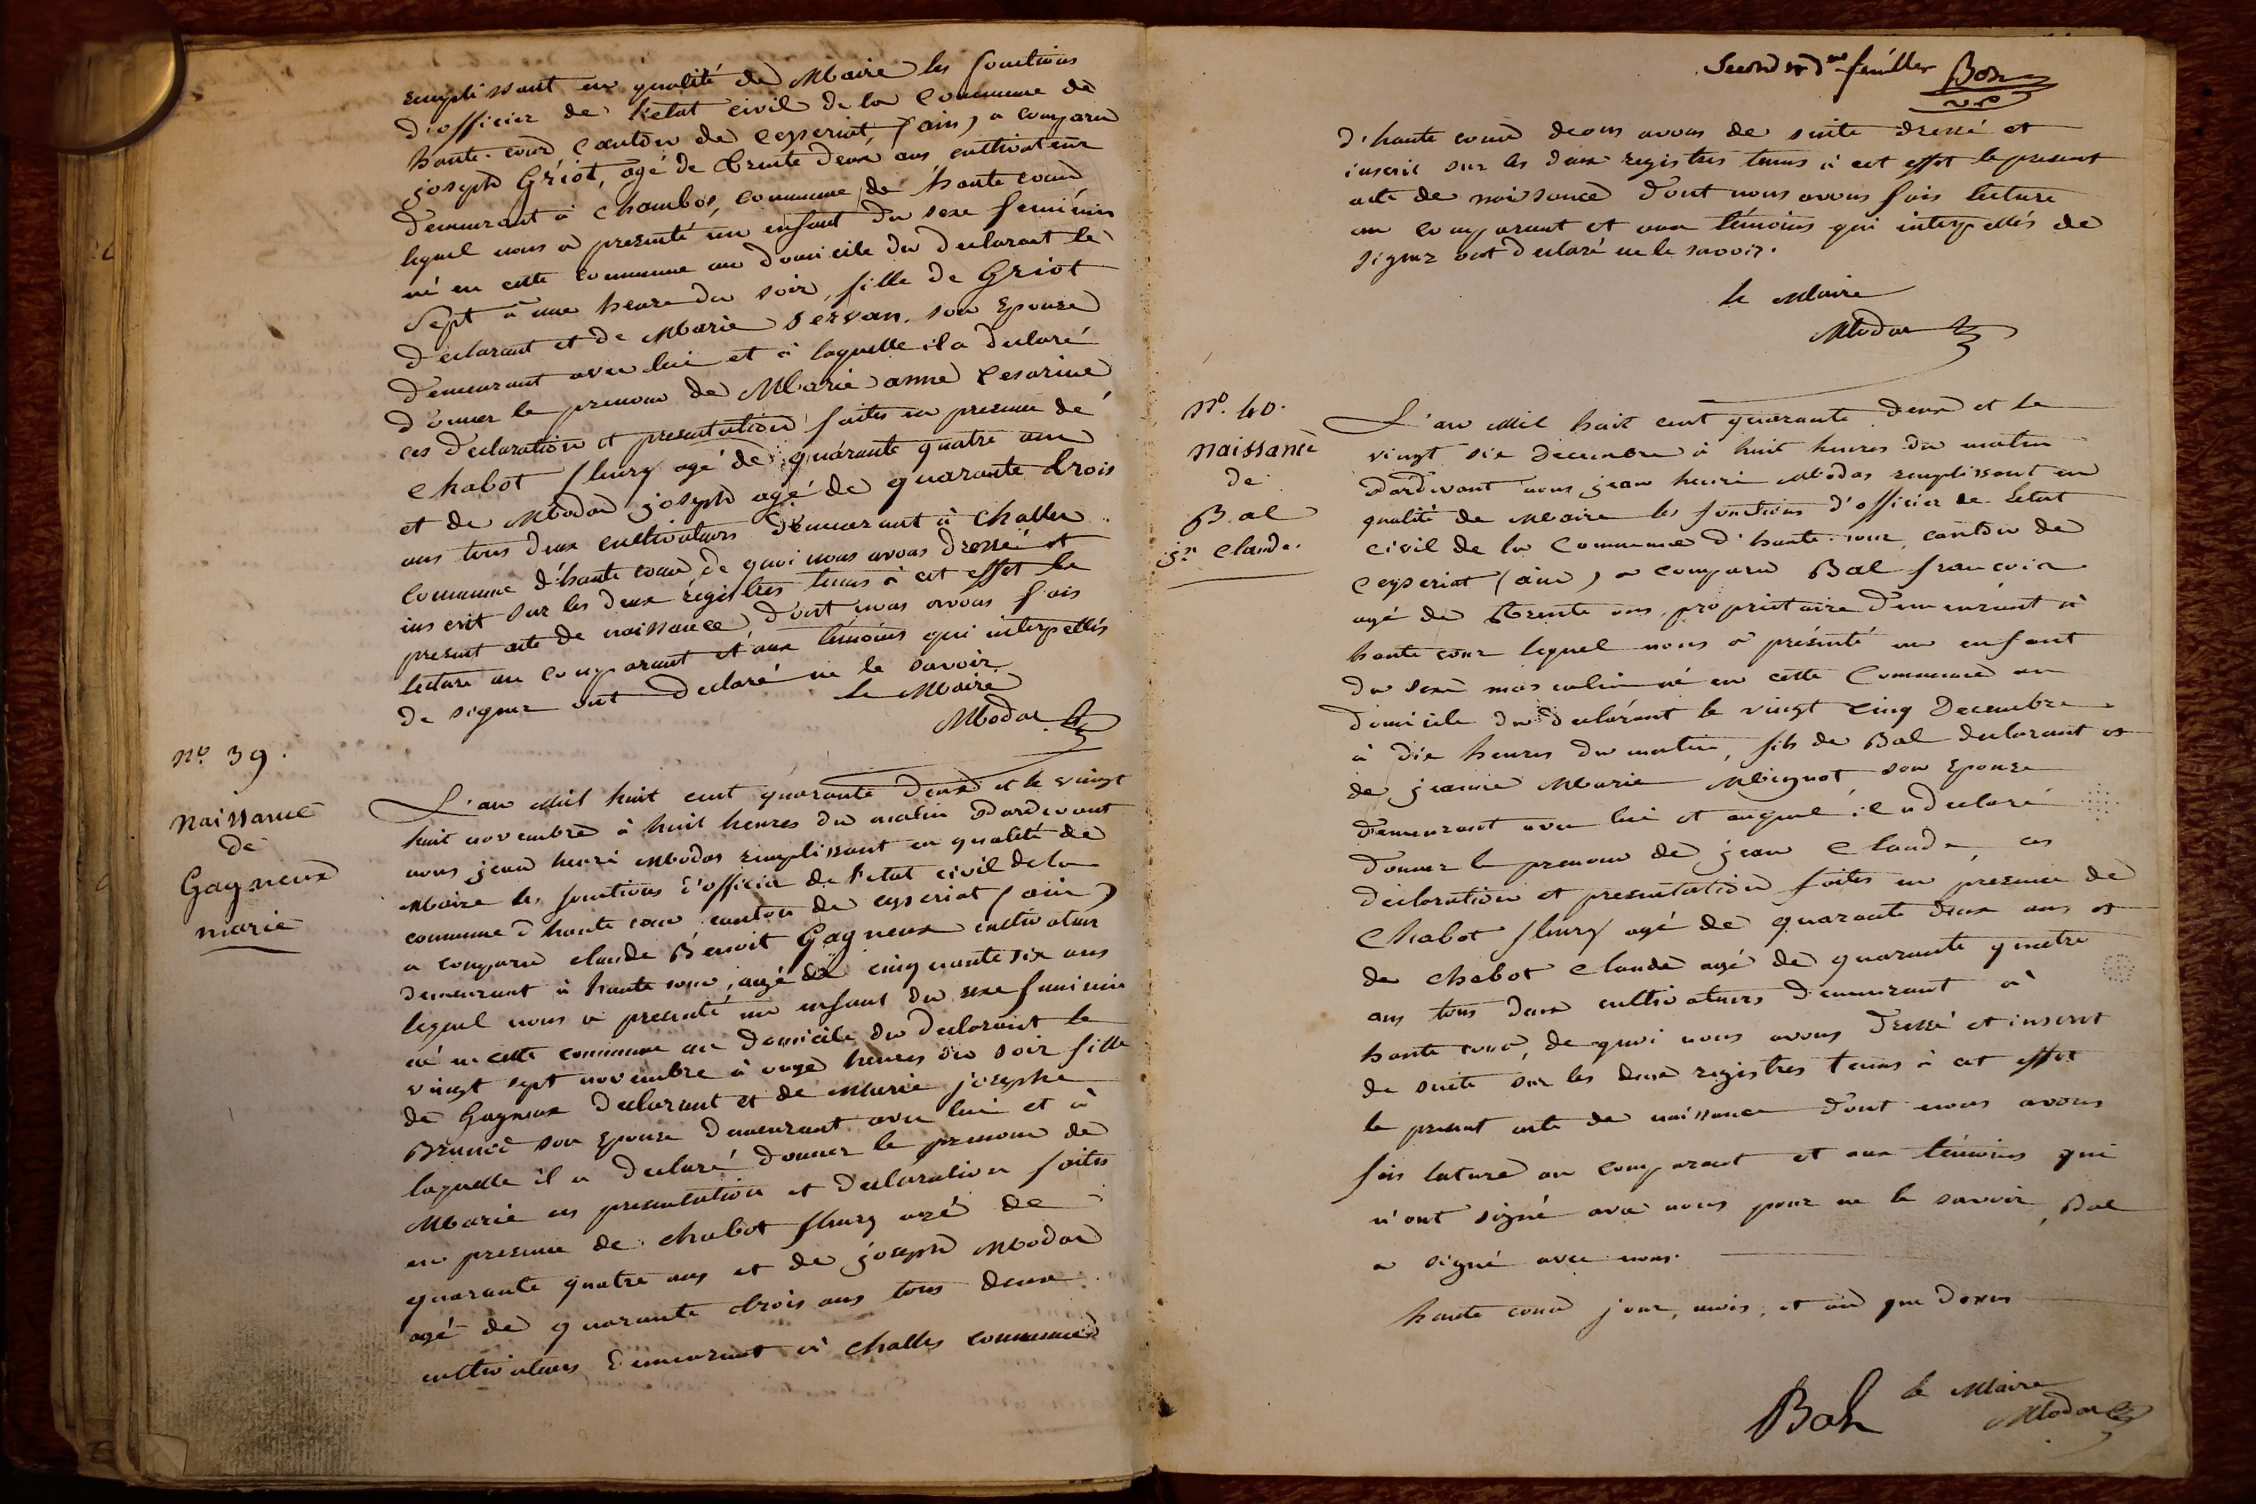 remplissant en qualité de Maire les fonctions
d'officier de l'etat civil de la Commune de
haute-cour Canton de Ceyseriat (ain) a comparu
joseph Griot, agé de trente deux ans cultivateur
demeurant à Chambos, Commune de haute cour
lequel nous a presenté un enfant du sexe feminin
né en cette commune au domicile du declarant le
Sept à une heure du soir, fille de Griot
declarant et de Marie Servan, son Epouse
demeurant avec lui et à laquelle il a declaré
donner le prenom de Marie anne Cesarine
ces declaration et presentation faites en presence de
Chabot fleury agé de quarante quatre ans
et de Modas joseph agé de quarante trois
ans tous deux cultivateurs demeurant à Challes
Commune d'haute cour de quoi nous avons dressé et
inscrit sur les deux régistres tenus à cet effet le
present acte de naissance dont nous avons fais
lecture au comparant et aux témoins qui interpellés
de signer ont declaré ne le savoir
le Maire
Modas
N° 39.
Naissance
de
Gagneux
marie
L'an Mil huit cent quarante deux et le vingt
huit novembre à huit heures du matin Pardevant
nous jean henri Modas remplissant en qualité de
Maire les fonctions d'officier de l'etat civil de la
commune d'haute cour canton de ceyseriat (ain)
a comparu claude Benoit Gagneux cultivateur
demeurant à haute cour, agé de cinquante six ans
lequel nous a presenté un enfant du sexe feminin
né en cette commune au domicile du declarant le
vingt sept novembre à onze heures du soir fille
de Gagneux declarant et de Marie josephe
Brunet son Epouse demeurant avec lui et à
laquelle il a declaré donner le prenom de
Marie ces presentation et declaration faites
en presence de chabot fleury agé de
quarante quatre ans et de joseph Modas
agé de quarante trois ans tous deux
cultivateurs demeurant à Challes commune
Second et feuillet Bon
d'haute cour deqoi avons de suite dressé et
inscrit sur les deux registres tenus à cet effet le present
acte de naissance dont nous avons fais lecture
au comparant et aux témoins qui interpellés de
signer ont declaré ne le savoir.
le Maire
Modas
N°. 40.
Naissance
de
Bal
jn Claude.
L'an Mil huit cent quarante deux et le
vingt six decembre à huit heures du matin
Pardevant nous jean henri Modas remplissant en
qualité de Maire les fonctions d'officier de l'etat
civil de la Commune d'haute-cour, canton de
Ceyseriat (ain) a comparu Bal francois
agé de trente ans, proprietaire demeurant à
haute cour lequel nous a présenté un enfant
du sexe masculin né en cette Commune au
domicile du declarant le vingt cinq Decembre
à dix heures du matin, fils de Bal declarant et
de jeanne Marie Mignot son Epouse
demeurant avec lui et auquel il a declaré
donner le prenom de jean Claude, ces
declaration et presentation faites en presence de
Chabot fleury agé de quarante deux ans et
de Chabot Claude agé de quarante quatre
ans tous deux cultivateurs demeurant à
haute cour, de quoi nous avons dressé et inscrit
de suite sur les deux registres tenus à cet effet
le present acte de naissance dont nous avons
fais lature au comparant et aux témoins qui
n'ont signé avec nous pour ne le savoir, Bal
a signé avec nous.
haute cour jour, mois, et an que dessus
le Maire
Bal Modas